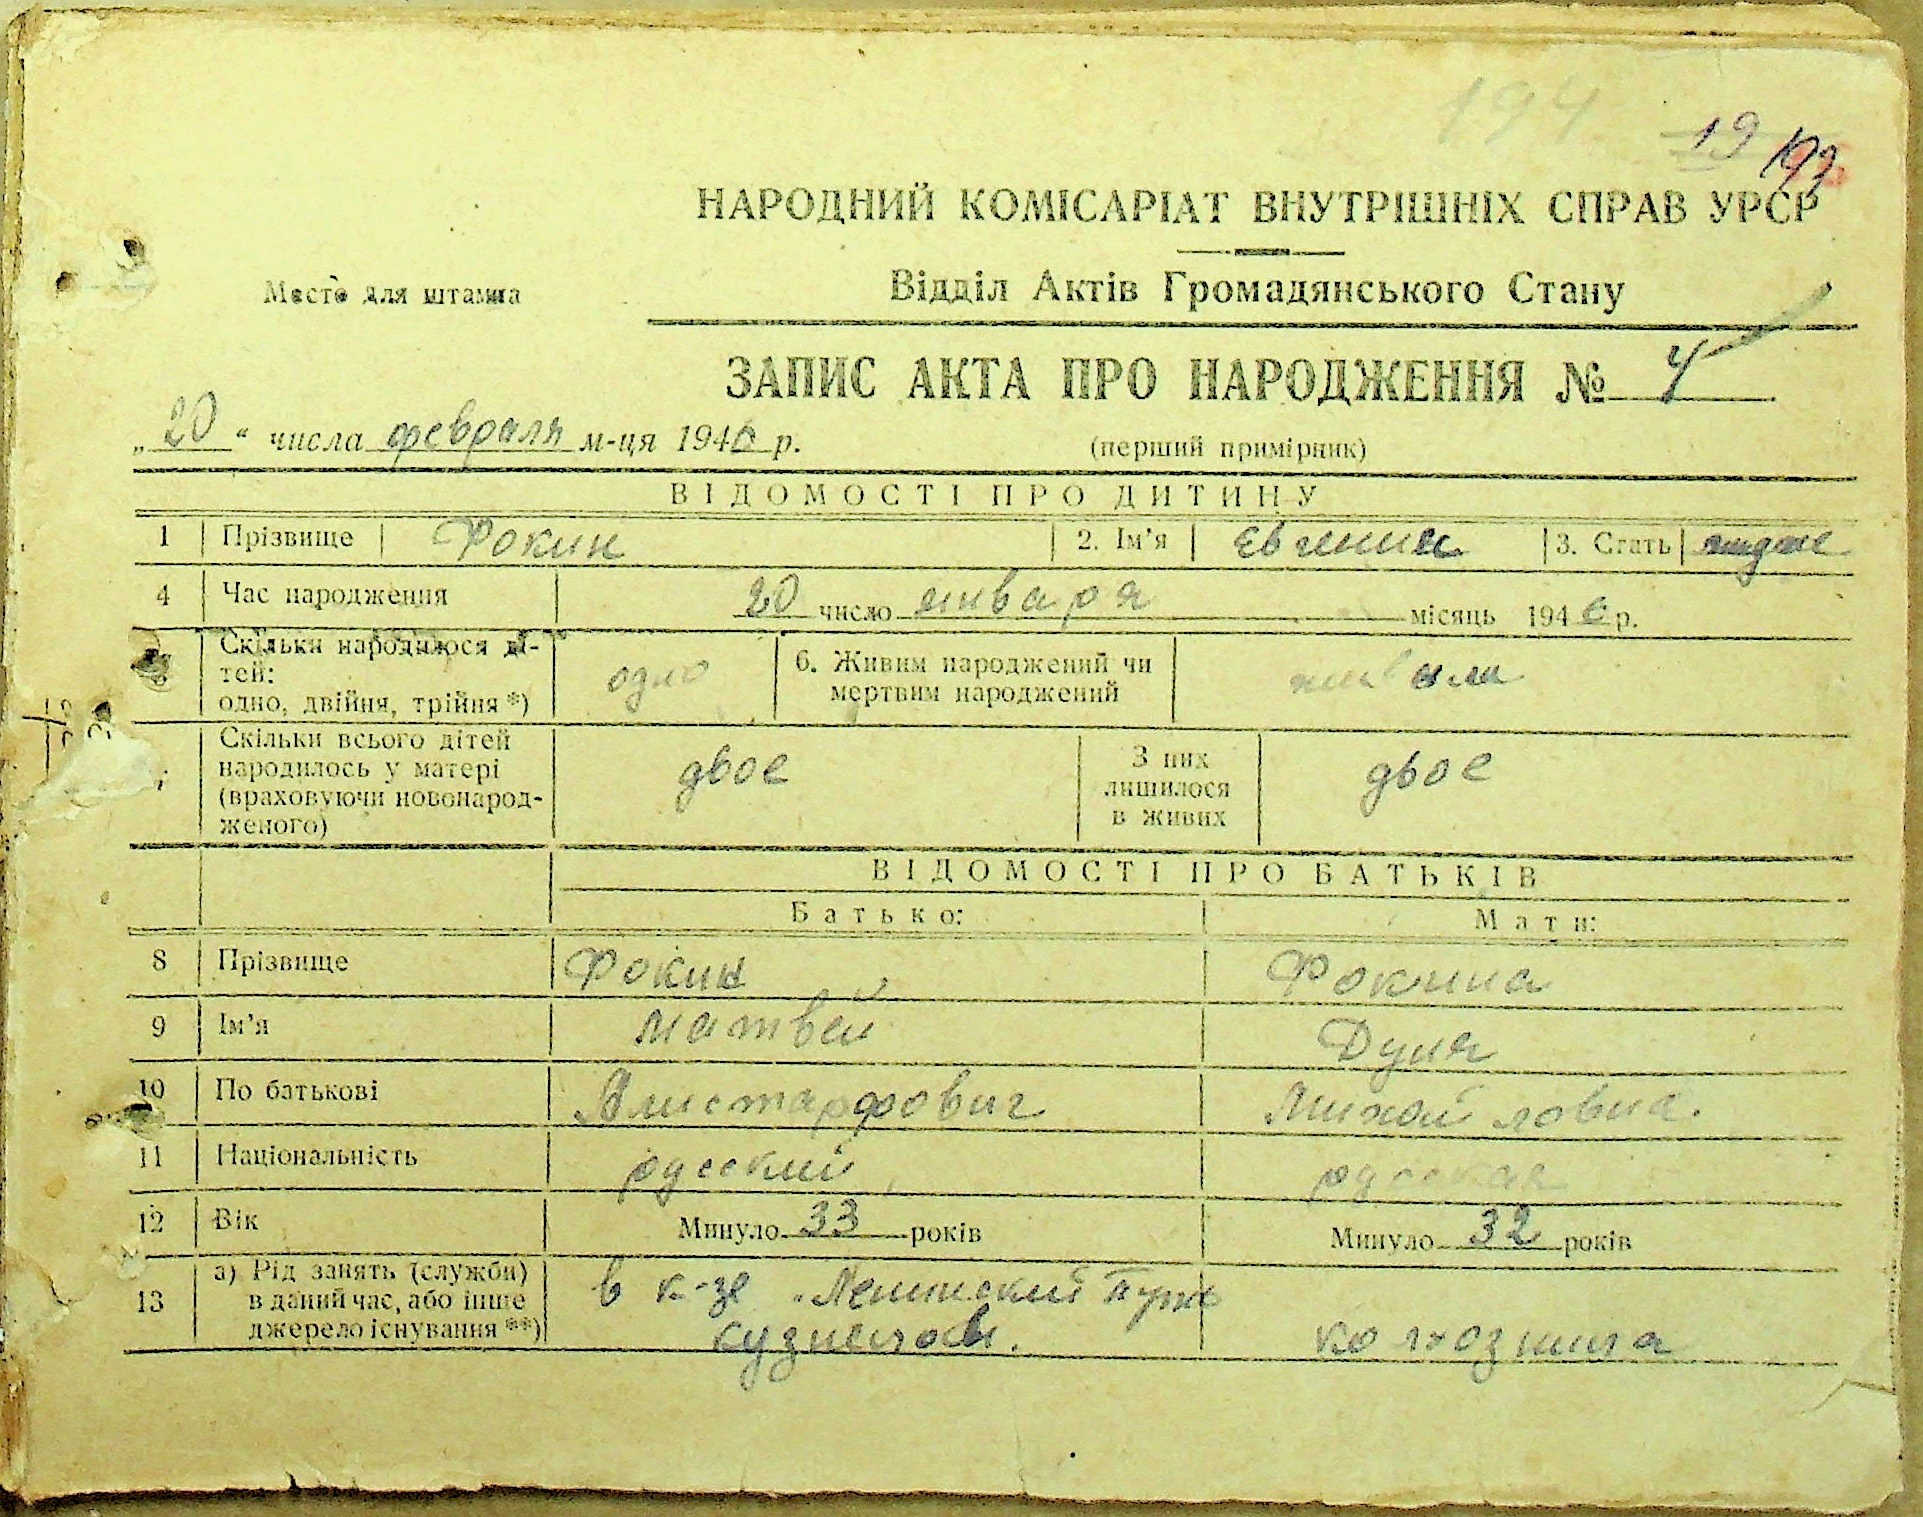 194
19 193
НАРОДНИЙ КОМІСАРІАТ ВНУТРІШНІХ СПРАВ УРСР
Место для штампа
Відділ Актів Громадянського Стану
ЗАПИС АКТА ПРО НАРОДЖЕННЯ № 4
„20“ числа февраля м-ця 1946 р. (перший примірник)
ВІДОМОСТІ ПРО ДИТИНУ
1 Прізвище Фокин 2. Ім'я Евгений 3. Стать
4 Час народження 20 число января місяць 1946 р.
Скільки народилося ді-
тей:
одно, двійня, трійня *) одно 6. Живим народжений чи
мертвим народжений живым
Скільки всього дітей
народилось у матері
(враховуючи новонарод-
женого) двое З них
лишилося
в живих двое
ВІДОМОСТІ ПРО БАТЬКІВ
Батько: Мати:
8 Прізвище Фокин Фокина
9 Ім'я Матвей Дуня
10 По батькові Алистарфович Михайловна.
11 Національність русский русская
12 Вік Минуло 33 років Минуло 32 років
13 а) Рід занять (служби)
в даний час, або інше
джерело існування **) в к-зе „Ленинский Путь
колхозница